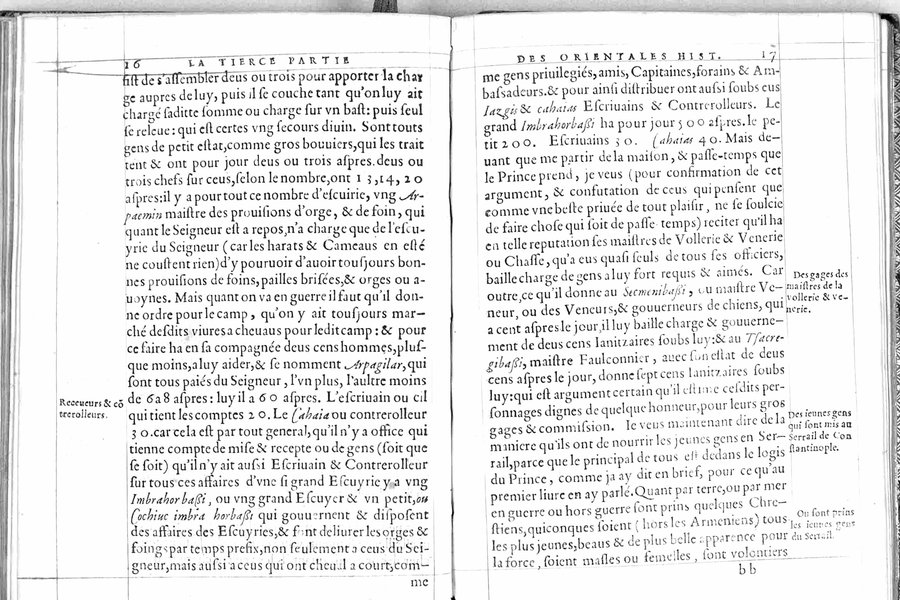 16 LA TIERCE PARTIE
fist de s'assembler deus ou trois pour apporter la char
ge aupres de luy, puis il se couche tant qu'on luy ait
chargé saditte somme ou charge sur vn bast: puis seul
se releue: qui est certes vng secours diuin. Sont touts
gens de petit estat, comme gros bouuiers, qui les trait
tent & ont pour jour deus ou trois aspres. deus ou
trois chefs sur ceus, selon le nombre, ont 13, 14, 20
aspres: il y a pour tout ce nombre d'escuirie, vng Ar-
paemin maistre des prouisions d'orge, & de foin, qui
quant le Seigneur est a repos, n'a charge que de l'escu-
yrie du Seigneur (car les harats & Cameaus en esté
ne coustent rien) d'y pouruoir d'auoir tousjours bon-
nes prouisions de foins, pailles brisées, & orges ou a-
uoynes. Mais quant on va en guerre il faut qu'il don-
ne ordre pour le camp, qu'on y ait tousjours mar-
ché desdits viures a cheuaus pour ledit camp: & pour
ce faire ha en sa compagnée deus cens hommes, plus-
que moins, a luy aider, & se nomment Arpagilar, qui
sont tous paiés du Seigneur, l'vn plus, l'aultre moins
de 6 a 8 aspres: luy il a 60 aspres. L'escriuain ou cil
qui tient les comptes 20. Le Cahaia ou contrerolleur
30. car cela est par tout general, qu'il n'y a office qui
tienne compte de mise & recepte ou de gens (soit que
se soit) qu'il n'y ait aussi Escriuain & Contrerolleur
sur tous ces affaires d'vne si grand Escuyrie y a vng
Imbrahorbassi, ou vng grand Escuyer & vn petit, ou
Cochiuc imbra horbassi qui gouuernent & disposent
des affaires des Escuyries, & font deliurer les orges &
foings par temps prefix, non seulement a ceus du Sei-
gneur, mais aussi a ceus qui ont cheual a court, com-
me
Receueurs & cõ
trerolleurs.
DES ORIENTALES HIST. 17
me gens priuilegiés, amis, Capitaines, forains & Am-
bassadeurs. & pour ainsi distribuer ont aussi soubs eus
Iazgis & cahaias Escriuains & Contrerolleurs. Le
grand Imbrahorbassi ha pour jour 500 aspres. le pe-
tit 200. Escriuains 30. Cahaias 40. Mais de-
uant que me partir de la maison, & passe-temps que
le Prince prend, je veus (pour confirmation de cet
argument, & confutation de ceus qui pensent que
comme vne beste priuée de tout plaisir, ne se soulcie
de faire chose qui soit de passe temps) reciter qu'il ha
en telle reputation ses maistres de Vollerie & Venerie
ou Chasse, qu'a eus quasi seuls de tous ses officiers,
baille charge de gens a luy fort requis & aimés. Car
outre, ce qu'il donne au Secmenibassi, ou maistre Ve-
neur, ou des Veneurs, & gouuerneurs de chiens, qui
a cent aspres le jour, il luy baille charge & gouuerne-
ment de deus cens Ianitzaires soubs luy: & au Tsacre-
gibassi, maistre Faulconnier, auec son estat de deus
cens aspres le jour, donne sept cens Ianitzaires soubs
luy: qui est argument certain qu'il estime cesdits per-
sonnages dignes de quelque honneur, pour leurs gros
gages & commission. Ie veus maintenant dire de la
maniere qu'ils ont de nourrir les jeunes gens en Ser-
rail, parce que le principal de tous est dedans le logis
du Prince, comme ja ay dit en brief, pour ce qu'au
premier liure en ay parlé. Quant par terre, ou par mer
en guerre ou hors guerre sont prins quelques Chre-
stiens, quiconques soient (hors les Armeniens) tous
les plus jeunes, beaus & de plus belle apparence pour
la force, soient masles ou femelles, sont volontiers
bb
Des gages des
maistres de la
vollerie & ve-
nerie.
Des ieunes gens
qui sont mis au
Serrail de Con
stantinople.
Ou sont prins
les ieunes gens
du Serrail.